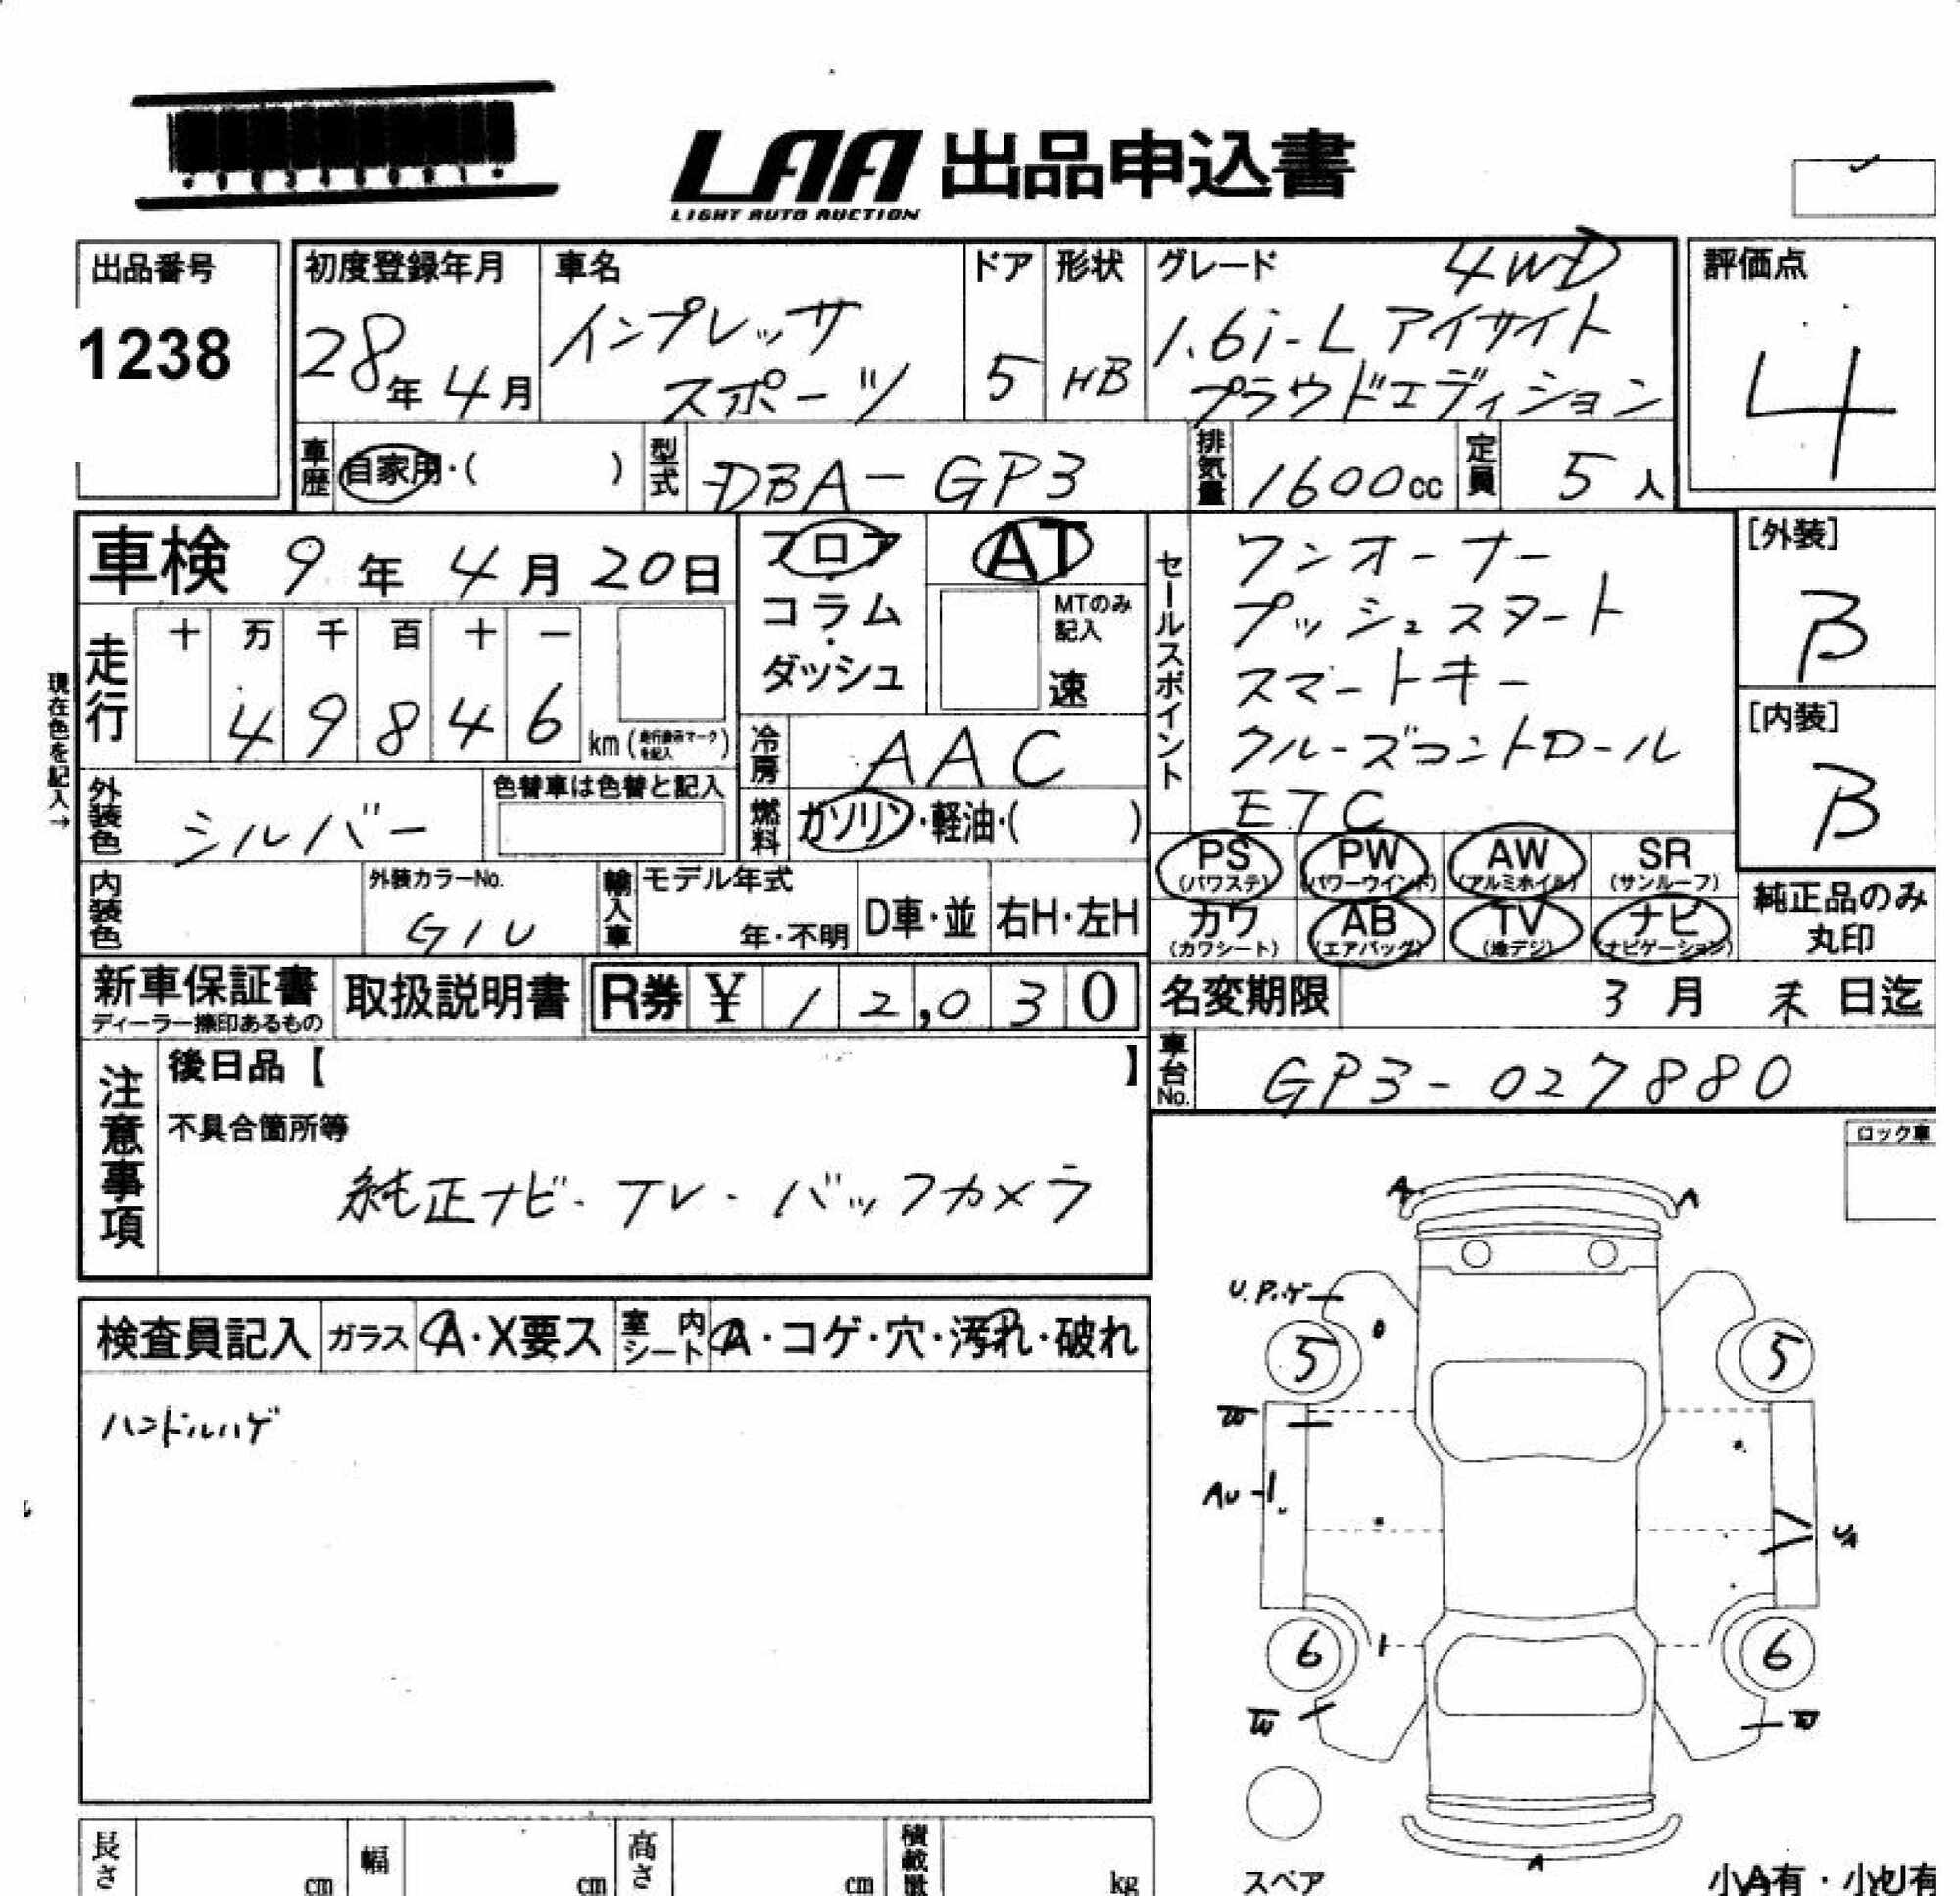 LAA 出品申込書
LIGHT AUTO AUCTION
出品番号
1238
初度登録年月
28年 4月
車名
インプレッサ
スポーツ
ドア
5
形状
HB
グレード
4WD
1.6i-L アイサイト
プラウドエディション
評価点
4
車歴
自家用・( )
型式
DBA-GP3
排気量
1600cc
定員
5人
車検 9年 4月 20日
現在色を記入→
走行
十 万 千 百 十 一
4 9 8 4 6
km(走行表示マークを記入)
フロア
コラム
・
ダッシュ
AT
MTのみ
記入
速
冷房
AAC
燃料
ガソリン・軽油・( )
外装色
シルバー
色替車は色替と記入
内装色
外装カラーNo.
G1U
輸入車
モデル年式
年・不明
D車・並
右H・左H
セールスポイント
ワンオーナー
プッシュスタート
スマートキー
クルーズコントロール
ETC
[外装]
B
[内装]
B
PS
(パワステ)
PW
(パワーウインド)
AW
(アルミホイル)
SR
(サンルーフ)
カワ
(カワシート)
AB
(エアバッグ)
TV
(地デジ)
ナビ
(ナビゲーション)
純正品のみ
丸印
新車保証書
ディーラー捺印あるもの
取扱説明書
R券 ¥ 1 2,0 3 0
名変期限
3月 末日迄
車台No.
GP3-027880
注意事項
後日品【 】
不具合箇所等
純正ナビ・TV・バックカメラ
ロック車
検査員記入
ガラス
A・X要ス
室内シート
A・コゲ・穴・汚れ・破れ
ハンドルハゲ
A
A
U.P.ゲ
5
5
W
AU
UA
6
6
W
W
A
スペア
長さ
cm
幅
cm
高さ
cm
積載量
kg
小A有・小U有